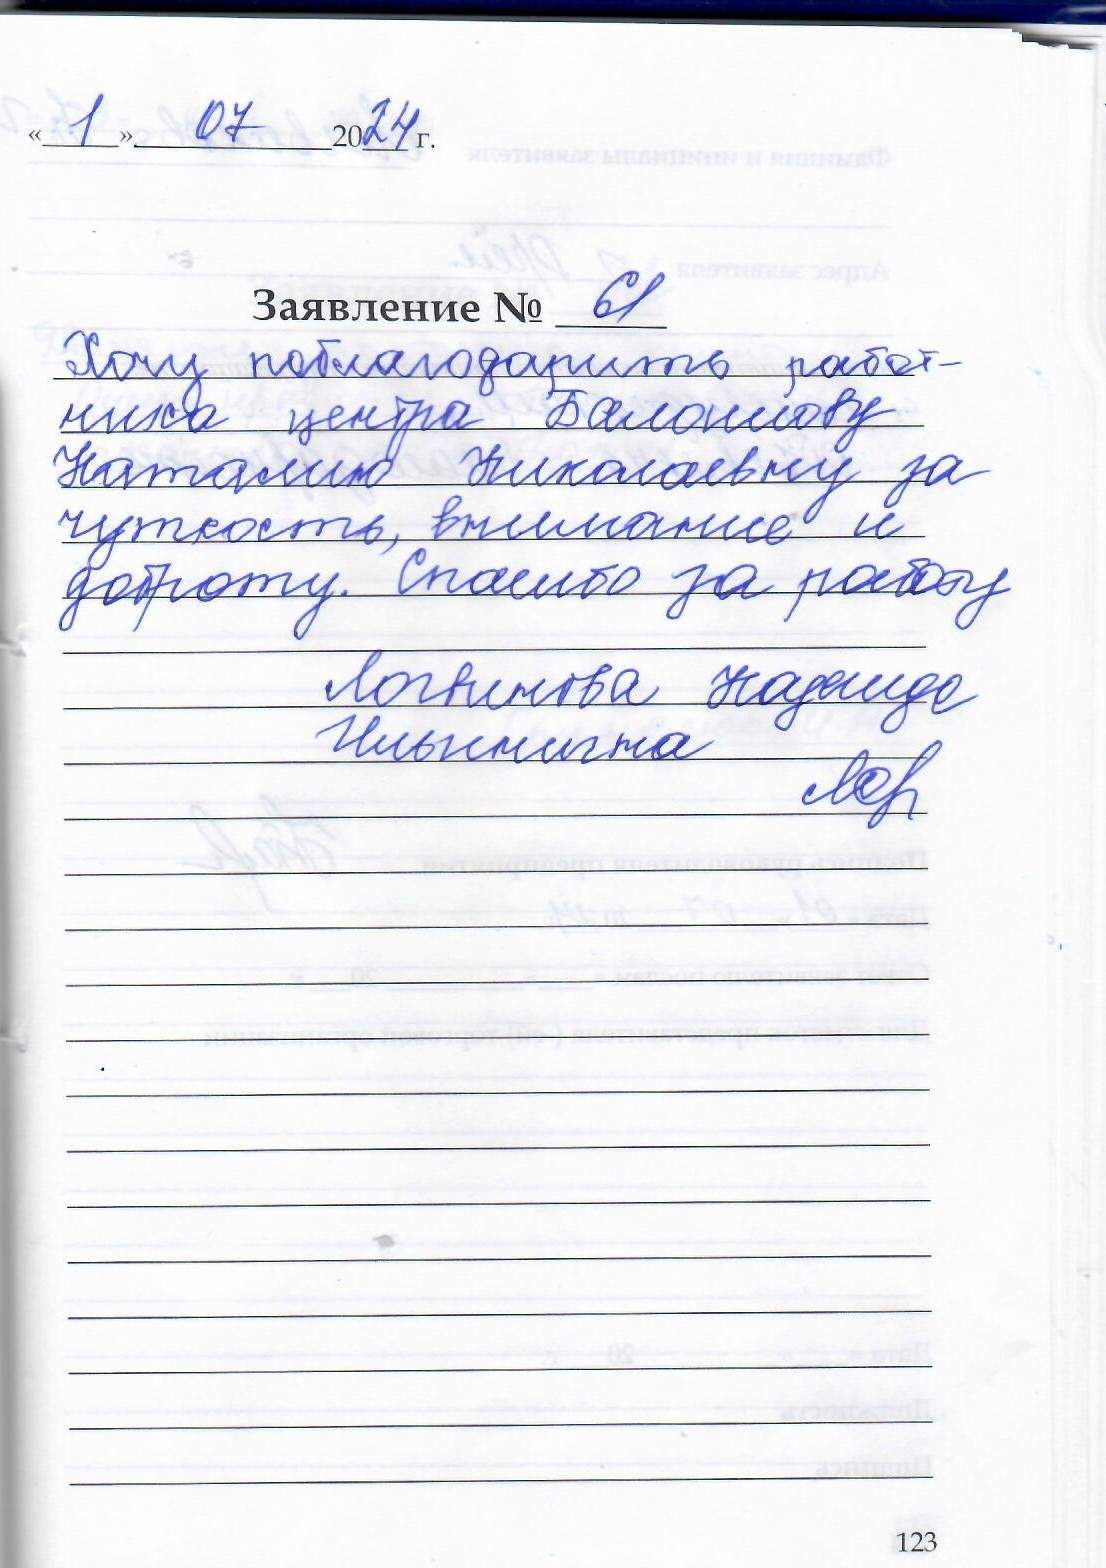 «1» 07 2024 г.
Заявление № 61
Хочу поблагодарить работ-
ника центра
Наталию Николаевну за
чуткость, внимание и
доброту. Спасибо за работу
Логвинова Надежда
Ильинична
123